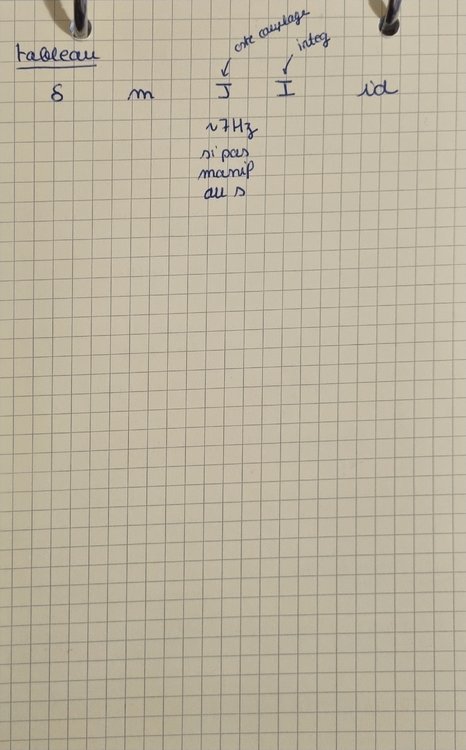 tableau
cste couplage
integ
δ m J I id
~7Hz
si pas
manip
au s